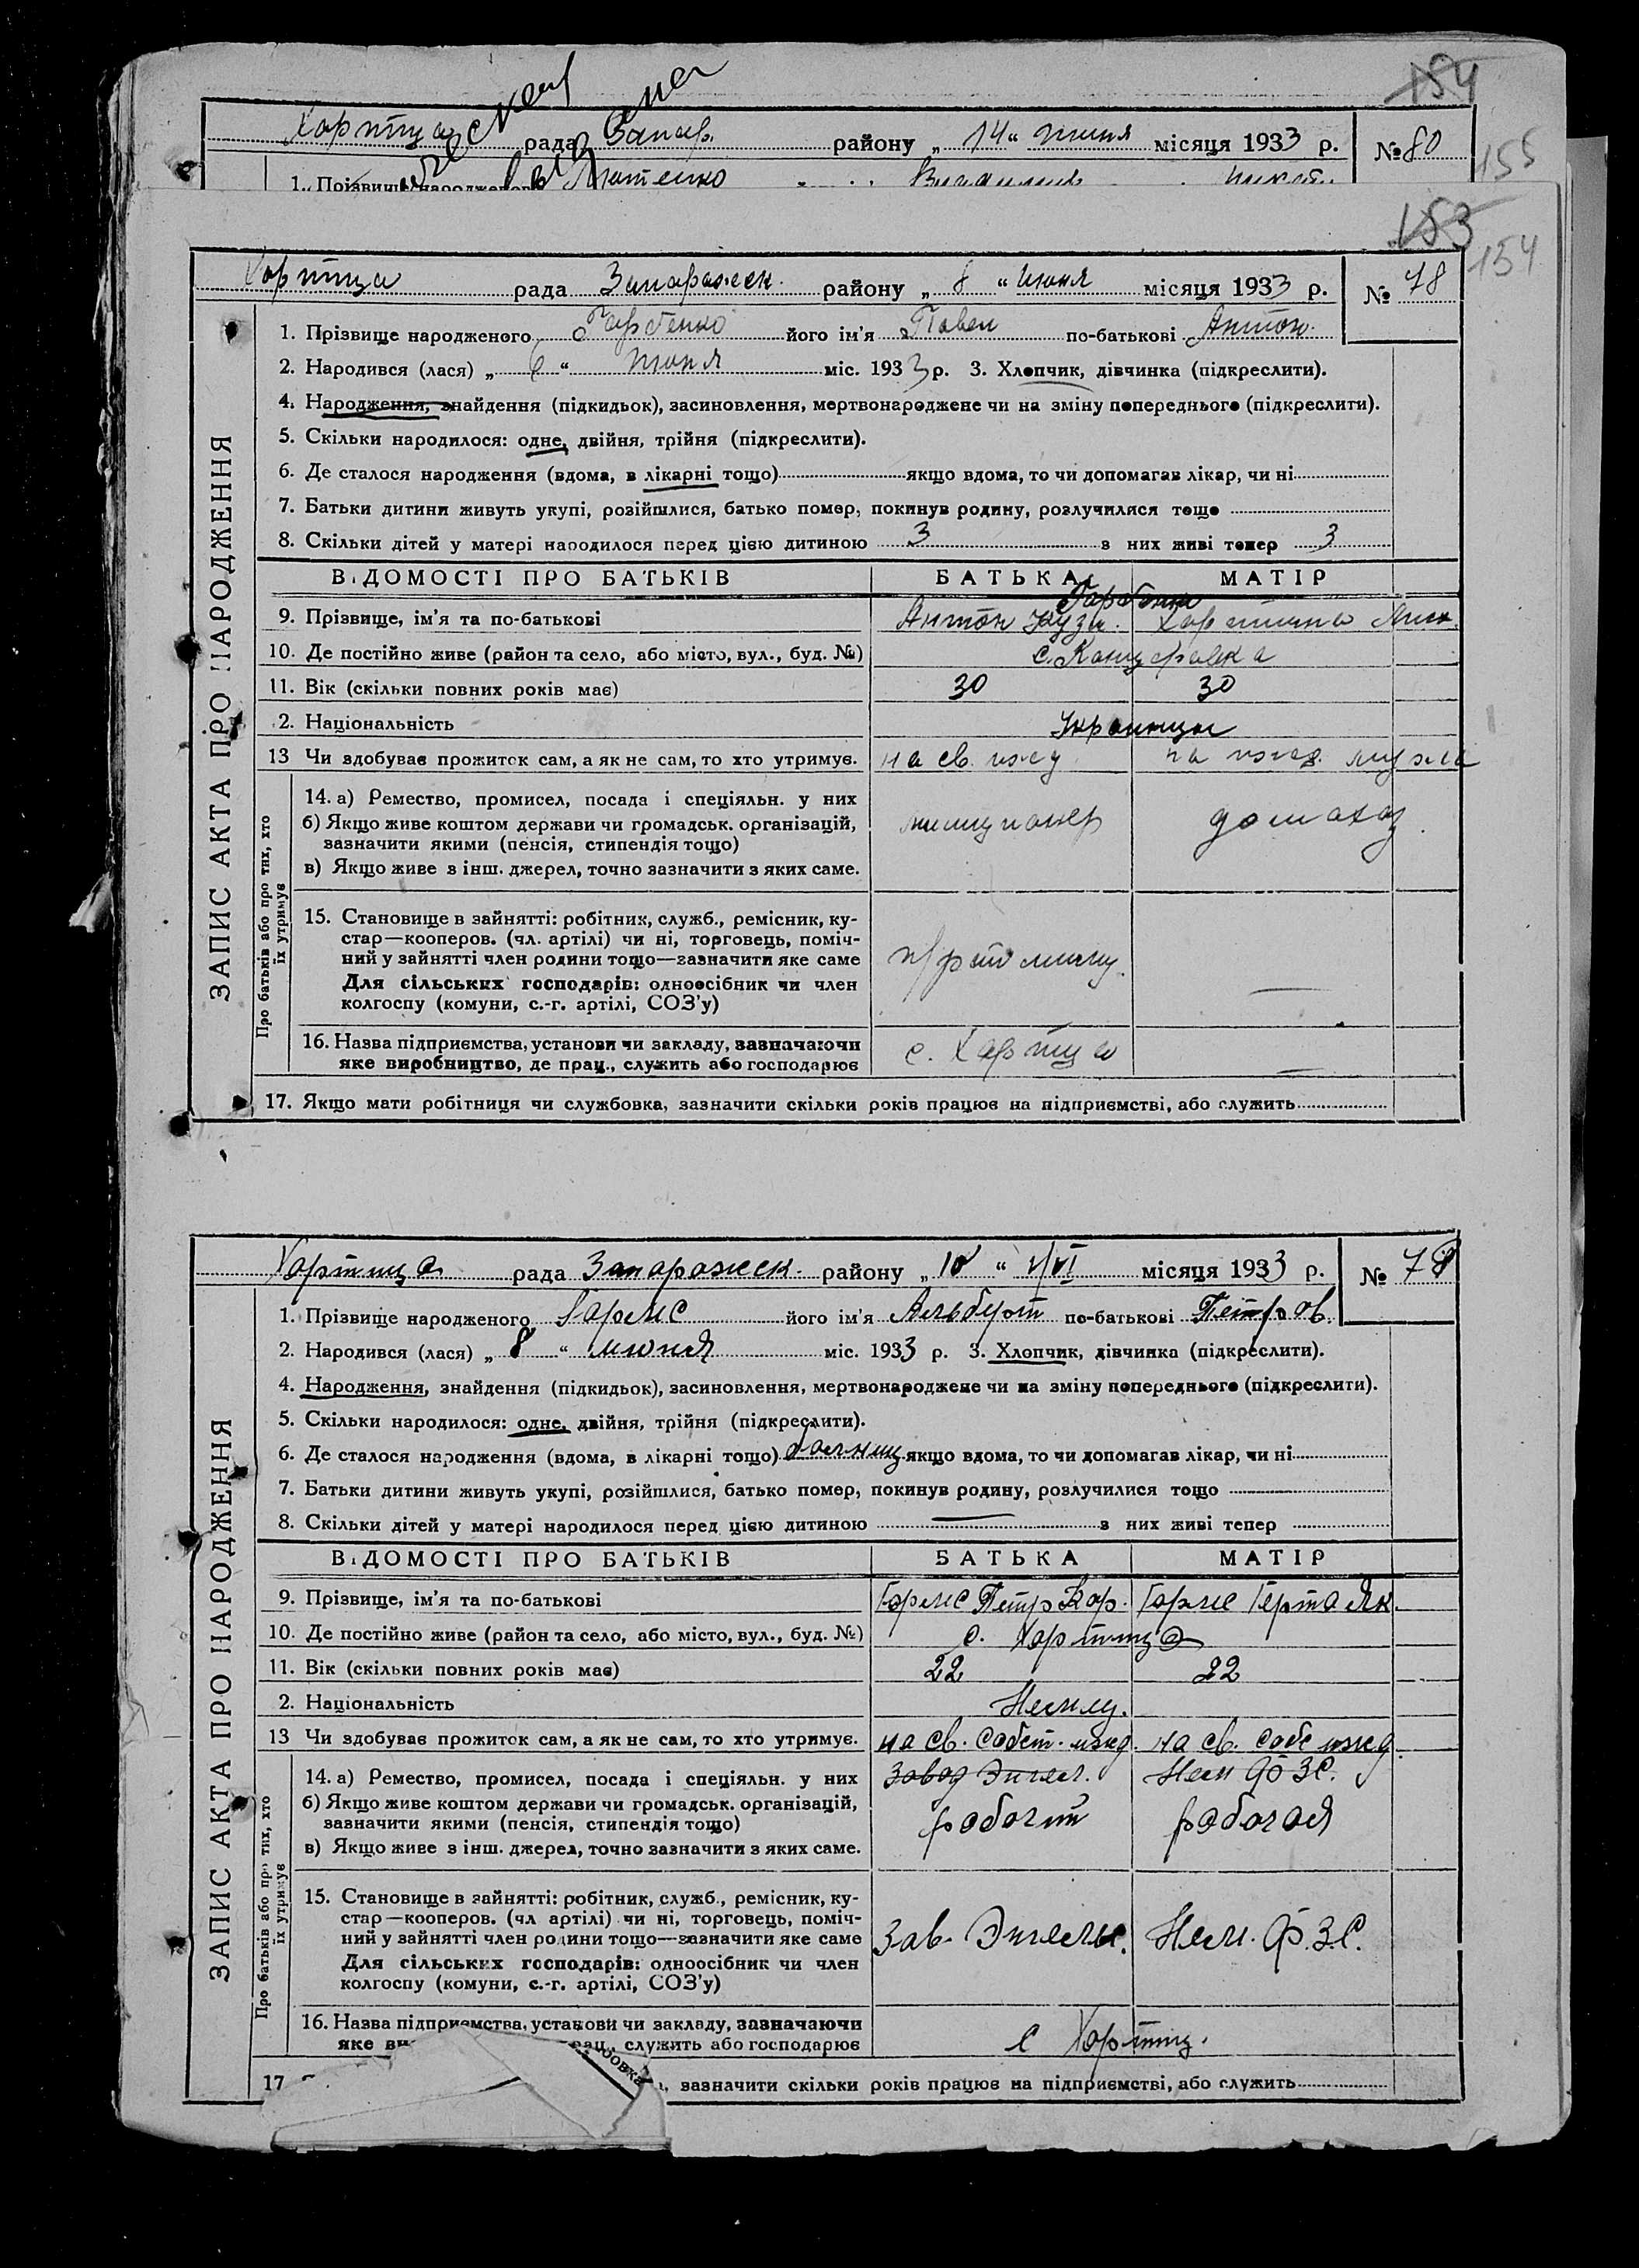 154
Хортица рада Запор. району „14“ июня місяця 1933 р. № 80
155
1. Прізвище народженого
153
154
Хортица рада Запорожск. району „ 8 “ июня місяця 1933 р. № 78
ЗАПИС АКТА ПРО НАРОДЖЕННЯ
1. Прізвище народженого Гарбенко його ім'я Павел по-батькові Антон.
2. Народився (лася) „ 6 “ июня міс. 1933 р. 3. Хлопчик, дівчинка (підкреслити).
4. Народження, знайдення (підкидьок), засиновлення, мертвонароджене чи на зміну попереднього (підкреслити).
5. Скільки народилося: одне, двійня, трійня (підкреслити).
6. Де сталося народження (вдома, в лікарні тощо) якщо вдома, то чи допомагав лікар, чи ні
7. Батьки дитини живуть укупі, розійшлися, батько помер, покинув родину, розлучилися тощо
8. Скільки дітей у матері народилося перед цією дитиною 3 з них живі тепер 3
ВІДОМОСТІ ПРО БАТЬКІВ БАТЬКА МАТІР
Гарбенко
9. Прізвище, ім'я та по-батькові Антон Кузь.
10. Де постійно живе (район та село, або місто, вул., буд. №) с. Канцеровка
11. Вік (скільки повних років має) 30 30
2. Національність Украинцы
13 Чи здобуває прожиток сам, а як не сам, то хто утримує. на св. ижд. на ижд. мужа
Про батьків або про тих, хто їх утримує
14. а) Ремество, промисел, посада і спеціяльн. у них
б) Якщо живе коштом держави чи громадськ. організацій, милиционер домохоз.
зазначити якими (пенсія, стипендія тощо)
в) Якщо живе з інш. джерел, точно зазначити з яких саме.
15. Становище в зайнятті: робітник, служб., ремісник, ку-
стар—кооперов. (чл. артілі) чи ні, торговець, поміч-
ний у зайнятті член родини тощо—зазначити яке саме
Для сільських господарів: одноосібник чи член —
колгоспу (комуни, с.-г. артілі, СОЗ'у)
16. Назва підприємства, установи чи закладу, зазначаючи с. Хортица
яке виробництво, де прац., служить або господарює —
17. Якщо мати робітниця чи службовка, зазначити скільки років працює на підприємстві, або служить
Хортица рада Запорожск. району „ 10 “ V/VI місяця 1933 р. № 78
ЗАПИС АКТА ПРО НАРОДЖЕННЯ
1. Прізвище народженого Гармс його ім'я Альберт по-батькові Петров.
2. Народився (лася) „ 8 “ июня міс. 1933 р. 3. Хлопчик, дівчинка (підкреслити).
4. Народження, знайдення (підкидьок), засиновлення, мертвонароджене чи на зміну попереднього (підкреслити).
5. Скільки народилося: одне, двійня, трійня (підкреслити).
6. Де сталося народження (вдома, в лікарні тощо) больниц. якщо вдома, то чи допомагав лікар, чи ні
7. Батьки дитини живуть укупі, розійшлися, батько помер, покинув родину, розлучилися тощо
8. Скільки дітей у матері народилося перед цією дитиною — з них живі тепер
ВІДОМОСТІ ПРО БАТЬКІВ БАТЬКА МАТІР
9. Прізвище, ім'я та по-батькові Гармс Петр Кор. Гармс Герта Як.
10. Де постійно живе (район та село, або місто, вул., буд. №) с. Хортица
11. Вік (скільки повних років має) 22 22
2. Національність Немцы.
13 Чи здобуває прожиток сам, а як не сам, то хто утримує. на св. собст. ижд. на св. собс ижд.
Про батьків або про тих, хто їх утримує
14. а) Ремество, промисел, посада і спеціяльн. у них Завод Энгел. Нем ФЗС.
б) Якщо живе коштом держави чи громадськ. організацій, рабочий рабочая
зазначити якими (пенсія, стипендія тощо)
в) Якщо живе з інш. джерел, точно зазначити з яких саме.
15. Становище в зайнятті: робітник, служб., ремісник, ку-
стар—кооперов. (чл артілі) чи ні, торговець, поміч-
ний у зайнятті член родини тощо—зазначити яке саме Зав. Энгельс. Нем. Ф.З.С.
Для сільських господарів: одноосібник чи член
колгоспу (комуни, с.-г. артілі, СОЗ'у)
16. Назва підприємства, установи чи закладу, зазначаючи
яке прац., служить або господарює с Хортиц.
17 зазначити скільки років працює на підприємстві, або служить